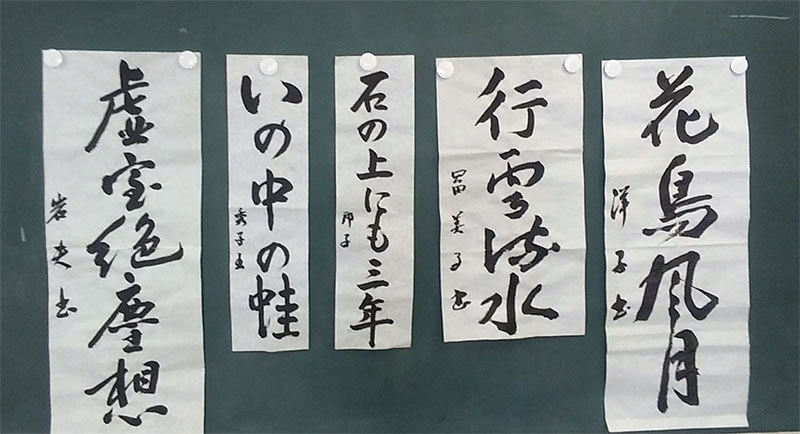 花鳥風月
洋子書
行雲流水
冨美子書
石の上にも三年
邦子
いの中の蛙
秀子書
虚室絶塵想
岩夫書